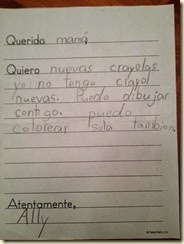 Querido mamá,
Quiero nuevas crayolas
yo no tengo crayol
nuevas. Puedo dibujar
contigo. puedo
colorear sola tambien.
Atentamente,
Ally